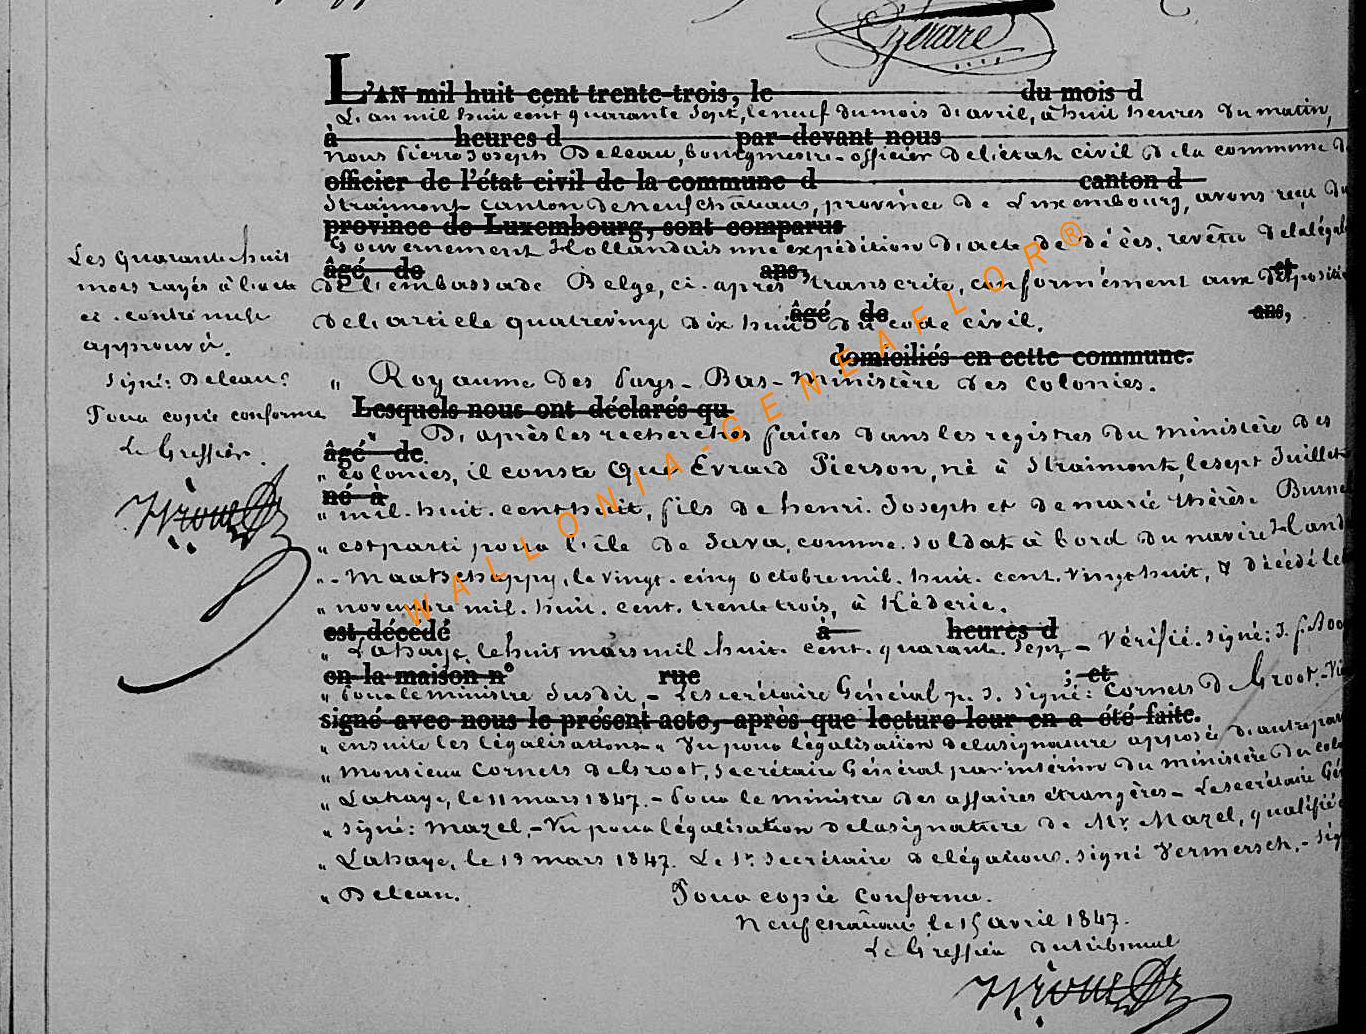 Gérard
L'AN mil huit cent trente-trois, le du mois d
L'an mil huit cent quarante sept, le neuf du mois d'avril, à huit heures du matin,
à heures d par-devant nous
nous Pierre Joseph Deleau, bourgmestre-officier de l'état civil de la commune de
officier de l'état civil de la commune d canton d
Straimont canton de neufchâteau, province de Luxembourg, avons reçu du
province de Luxembourg, sont comparus
Gouvernement Hollandais une expédition d'acte de décès, revêtu de la légalis
âgé de ans, et
de l'embassade Belge, ci-après transcrite, conformément aux dispositio
âgé de ans,
de l'article quatrevingt dix huit du code civil.
domiciliés en cette commune.
" Royaume des Pays-Bas-Ministère des colonies.
Lesquels nous ont déclarés qu
" D'après les recherches faites dans les registres du ministère des
âgé de
" colonies, il conste que Evrard Pierson, né à Straimont, le sept Juillet
né à
" mil-huit-cent huit, fils de henri-Joseph et de marie thérèse Burne
" est parti pour l'île de Java, comme soldat à bord du navire
" Maatschappy, le vingt-cinq octobre mil-huit-cent-vingt huit, & décédé le
" novembre mil-huit-cent-trente trois, à Kéderie.
est décédé à heures d
" Lahaye, le huit mars mil huit-cent-quarante-sept - Vérifié. signé: J.
en la maison n° rue ; et
" Pour le ministre susdit, - Le secrétaire Général p. i. signé: Cornets de Groot.-
signé avec nous le présent acte, après que lecture leur en a été faite.
" ensuite les légalisations " Vu pour légalisation de la signature apposée d'autre par
" Monsieur Cornets de Groot, secrétaire Général par intérim du ministère des colo
" Lahaye, le 11 mars 1847.- Pour le ministre des affaires étrangères - Le secrétaire Gé
" signé: Mazel,-Vu pour légalisation de la signature de Mr Mazel, qualifié
" Lahaye, le 13 mars 1847. Le 1r secrétaire de légation. signé Vermersch,- sig
" Deleau.
Pour copie conforme.
Neufchâteau le 15 avril 1847.
Le Greffier du tribunal
Les quarante huit
mots rayés à l'acte
ci-contre nuls
approuvé.
signé: Deleau.
Pour copie conforme
Le Greffier.
WALLONIA-GENEAFLOR®